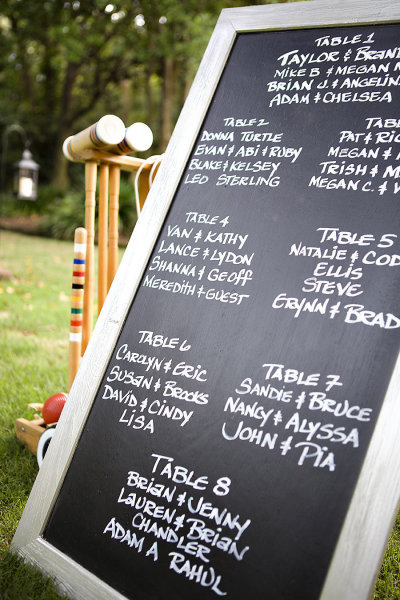 TABLE 1
TAYLOR &
MIKE B & MEGAN
BRIAN J. & ANGELIN
ADAM & CHELSEA
TABLE 2
DONNA TURTLE
EVAN & ABI & RUBY
BLAKE & KELSEY
LEO STERLING
TAB
PAT & RI
MEGAN &
TRISH & M
MEGAN C. & W
TABLE 4
VAN & KATHY
LANCE & LYDON
SHANNA & GEOFF
MEREDITH & GUEST
TABLE 5
NATALIE & COD
ELLIS
STEVE
ERYNN & BRAD
TABLE 6
CAROLYN & ERIC
SUSAN & BROOKS
DAVID & CINDY
LISA
TABLE 7
SANDIE & BRUCE
NANCY & ALYSSA
JOHN & PIA
TABLE 8
BRIAN & JENNY
LAUREN & BRIAN
CHANDLER
ADAM A & RAHUL